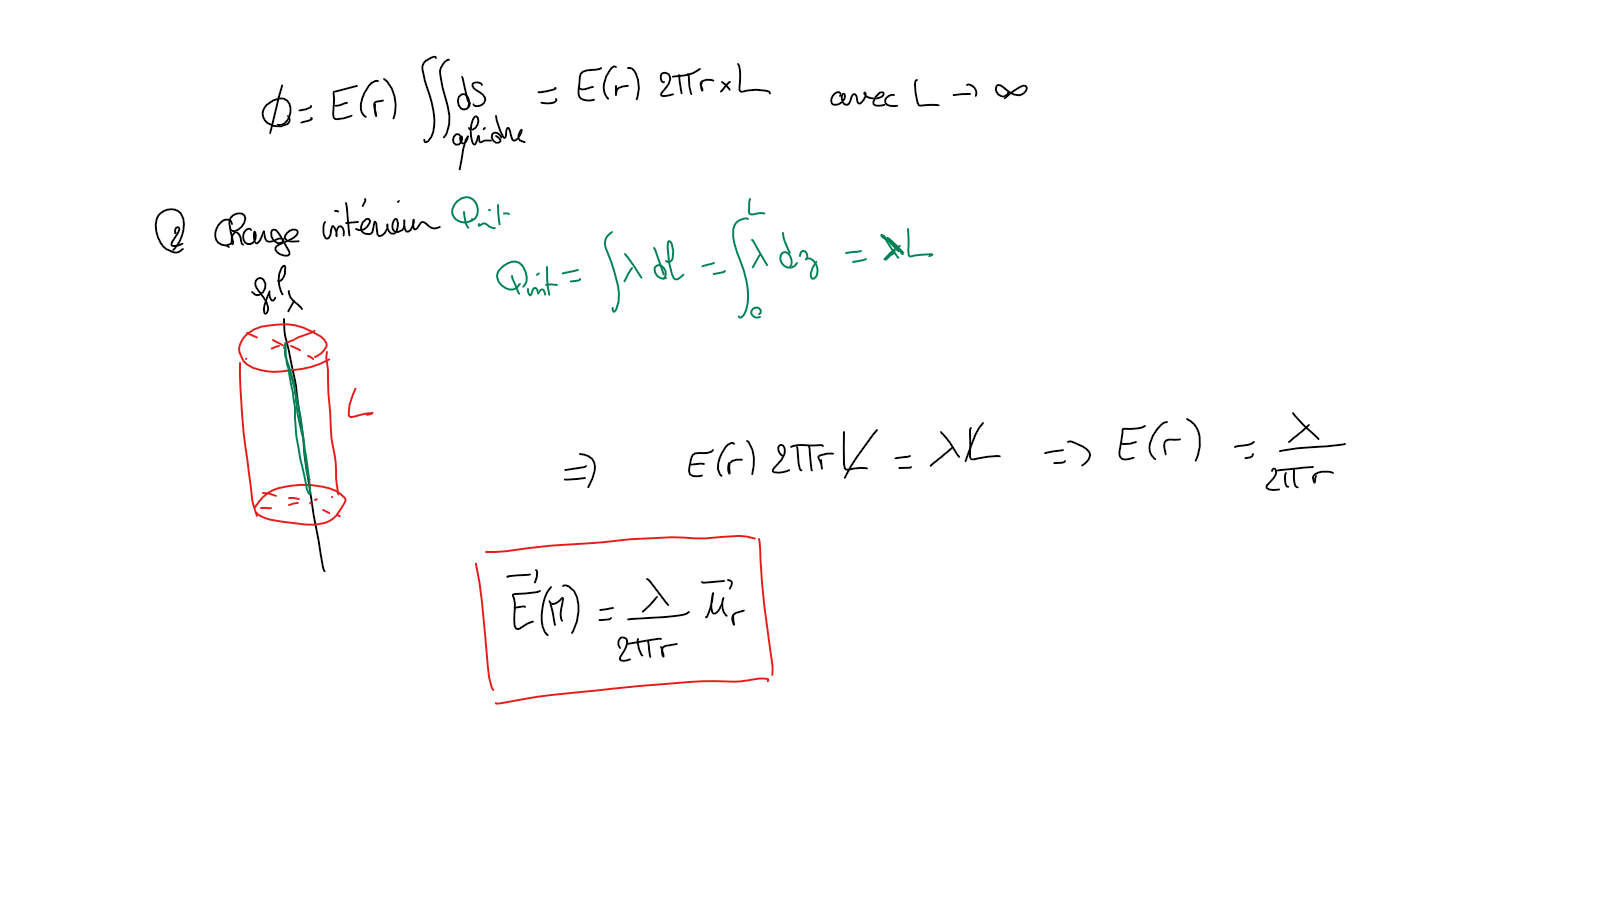 ϕ = E(r) ∬cylindre dS = E(r) 2πr×L avec L → ∞
② Charge intérieur Qint
Qint = ∫ λ dl = ∫₀ᴸ λ dz = λL
fil λ
L
⇒ E(r) 2πrL = λL ⇒ E(r) = λ/2πr
E⃗(M) = λ/2πr u⃗r